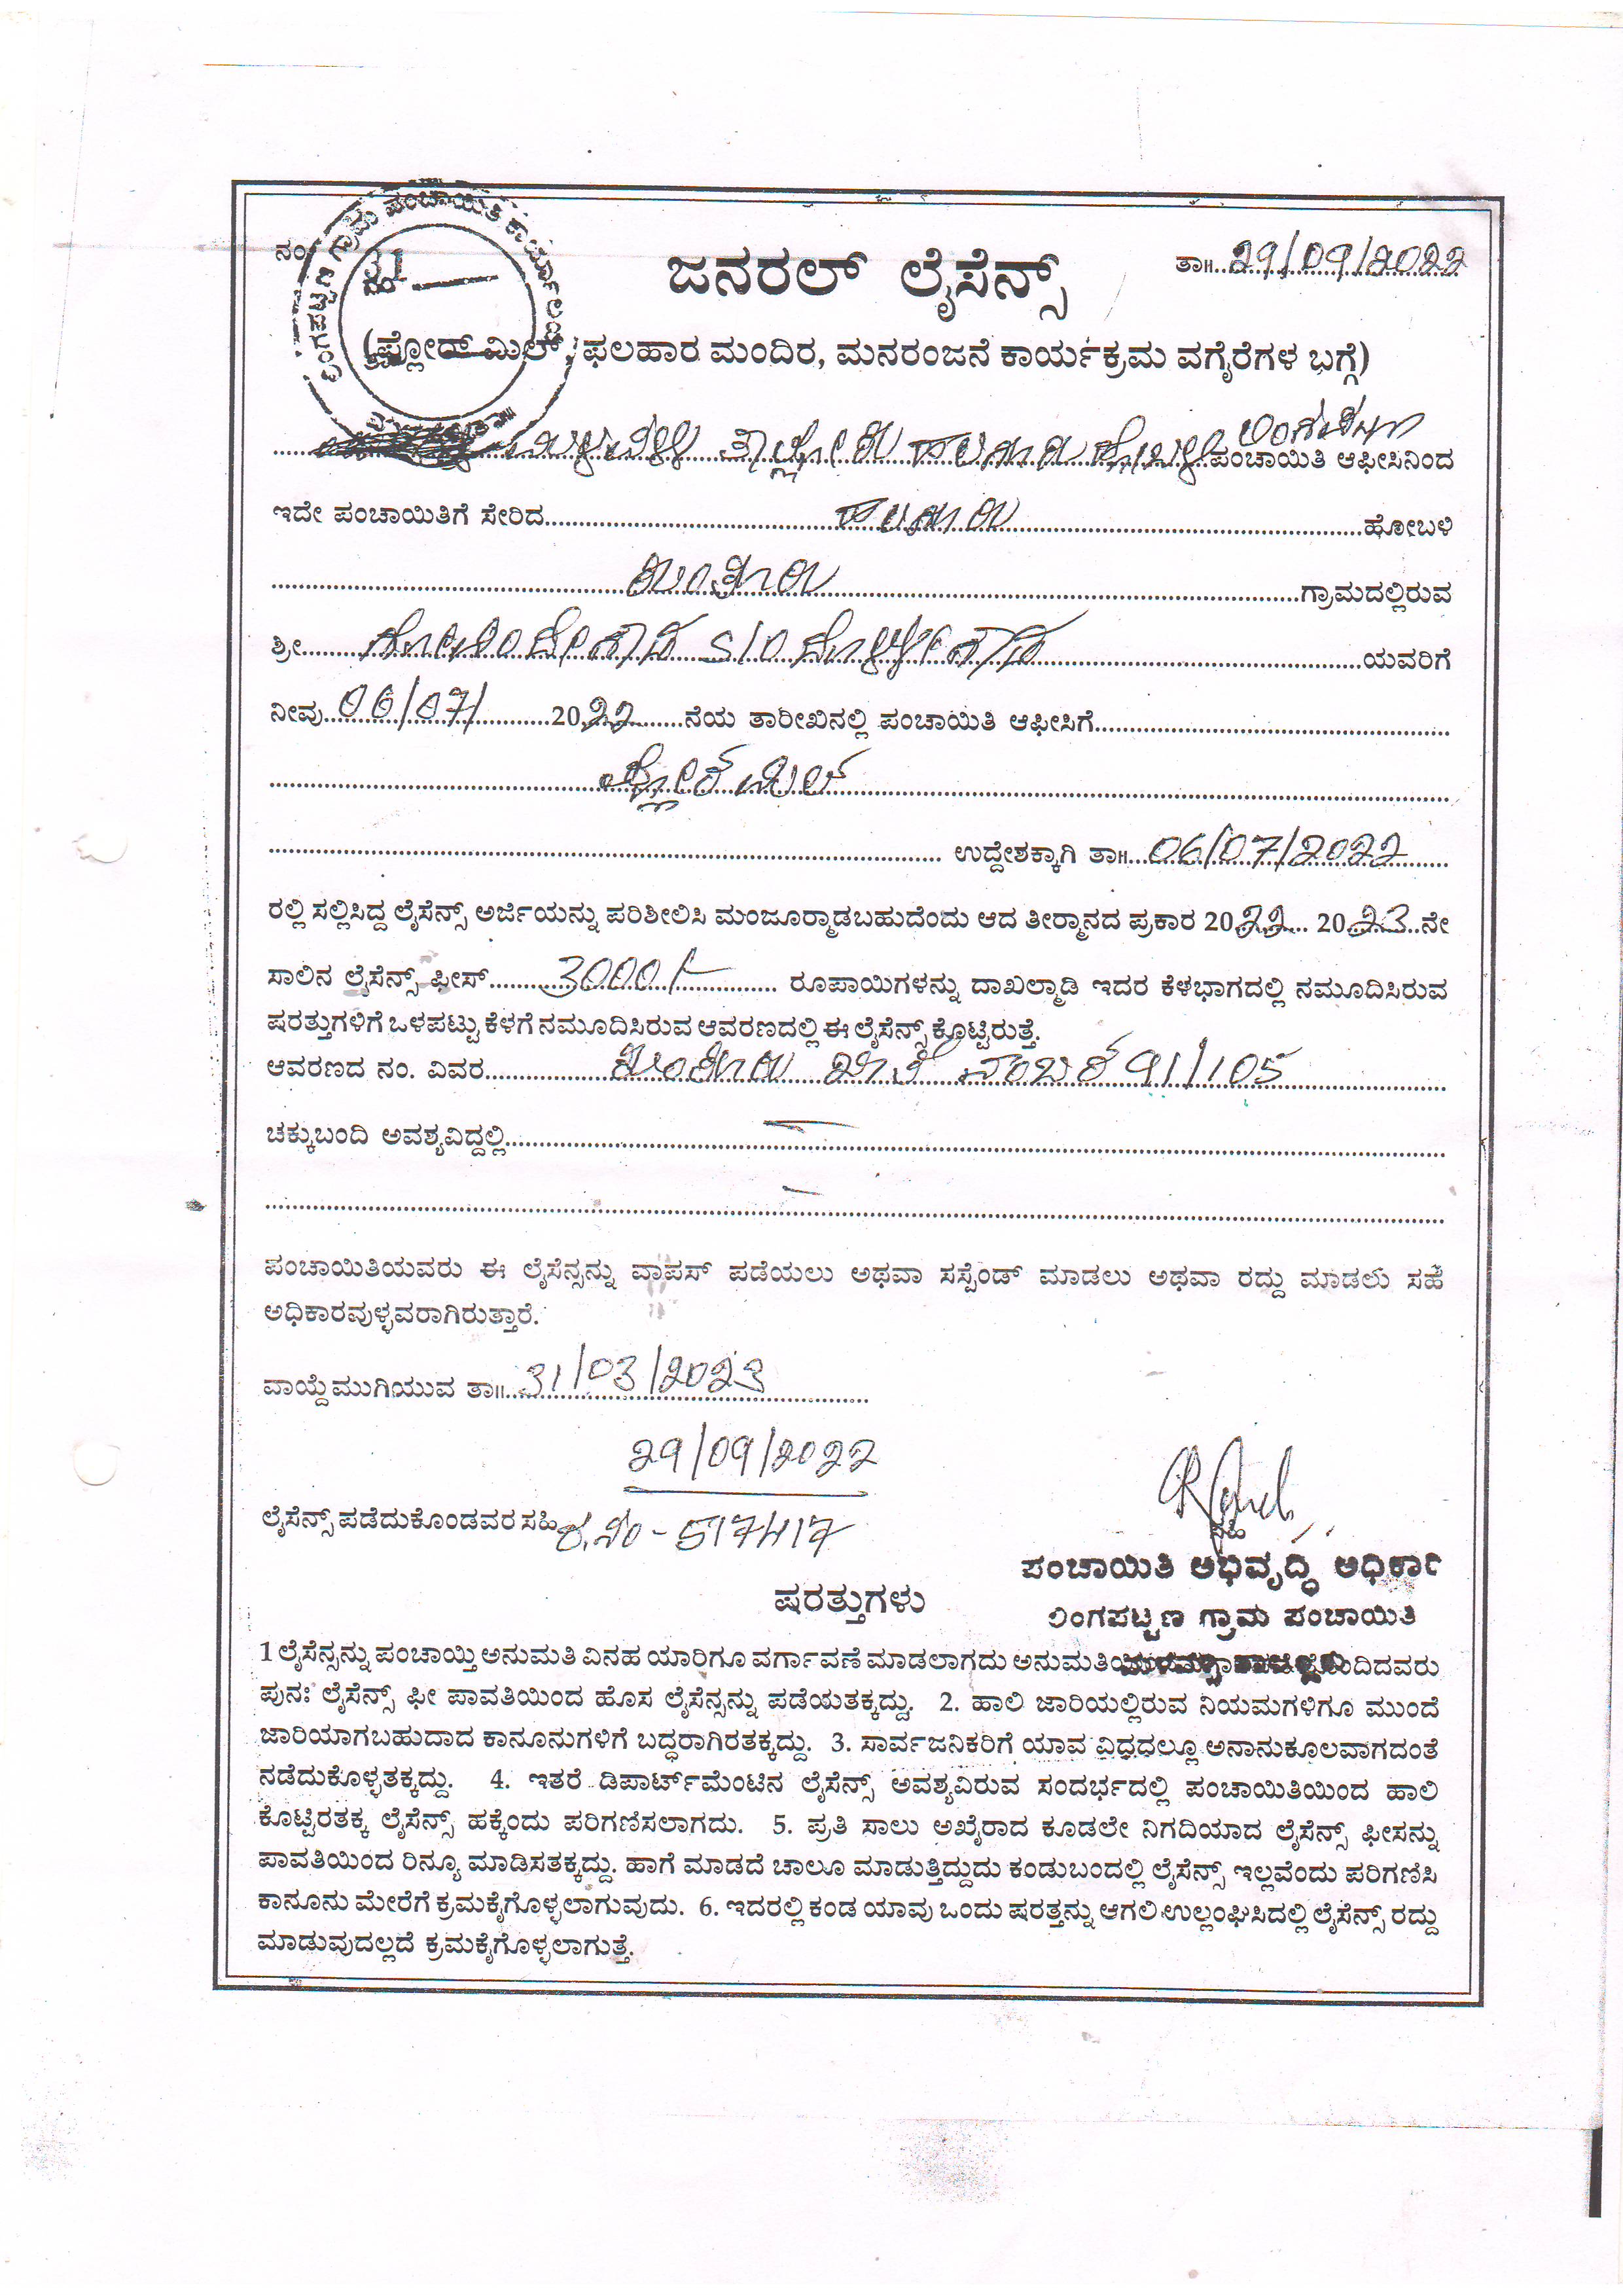 ನಂ. 21
ತಾ॥ 29/09/2022
ಜನರಲ್ ಲೈಸೆನ್ಸ್
(ಫ್ಲೋರ್ ಮಿಲ್, ಫಲಹಾರ ಮಂದಿರ, ಮನರಂಜನೆ ಕಾರ್ಯಕ್ರಮ ವಗೈರೆಗಳ ಬಗ್ಗೆ)
ಲಿಂಗಪಟ್ಟಣ
ಮಳವಳ್ಳಿ ತಾಲ್ಲೋಕು ಹಲಗೂರು ಹೋಬಳಿ ಪಂಚಾಯಿತಿ ಆಫೀಸಿನಿಂದ
ಇದೇ ಪಂಚಾಯಿತಿಗೆ ಸೇರಿದ ಹಲಗೂರು ಹೋಬಳಿ
ಗ್ರಾಮದಲ್ಲಿರುವ
ಶ್ರೀ S/O ಯವರಿಗೆ
ನೀವು 06/07/ 2022 ನೆಯ ತಾರೀಖಿನಲ್ಲಿ ಪಂಚಾಯಿತಿ ಆಫೀಸಿಗೆ
ಫ್ಲೋರ್ ಮಿಲ್
ಉದ್ದೇಶಕ್ಕಾಗಿ ತಾ॥ 06/07/2022
ರಲ್ಲಿ ಸಲ್ಲಿಸಿದ್ದ ಲೈಸೆನ್ಸ್ ಅರ್ಜಿಯನ್ನು ಪರಿಶೀಲಿಸಿ ಮಂಜೂರ್‍ಮಾಡಬಹುದೆಂದು ಆದ ತೀರ್‍ಮಾನದ ಪ್ರಕಾರ 2022 2023 ನೇ
ಸಾಲಿನ ಲೈಸೆನ್ಸ್ ಫೀಸ್ 3000/- ರೂಪಾಯಿಗಳನ್ನು ದಾಖಲ್ಮಾಡಿ ಇದರ ಕೆಳಭಾಗದಲ್ಲಿ ನಮೂದಿಸಿರುವ
ಷರತ್ತುಗಳಿಗೆ ಒಳಪಟ್ಟು ಕೆಳಗೆ ನಮೂದಿಸಿರುವ ಆವರಣದಲ್ಲಿ ಈ ಲೈಸೆನ್ಸ್ ಕೊಟ್ಟಿರುತ್ತೆ.
ಆವರಣದ ನಂ. ವಿವರ ಖಾತೆ ನಂಬರ್ 91/105
ಚಕ್ಕುಬಂದಿ ಅವಶ್ಯವಿದ್ದಲ್ಲಿ
ಪಂಚಾಯಿತಿಯವರು ಈ ಲೈಸೆನ್ಸನ್ನು ವಾಪಸ್ ಪಡೆಯಲು ಅಥವಾ ಸಸ್ಪೆಂಡ್ ಮಾಡಲು ಅಥವಾ ರದ್ದು ಮಾಡಲು ಸಹ
ಅಧಿಕಾರವುಳ್ಳವರಾಗಿರುತ್ತಾರೆ.
ವಾಯ್ದೆಮುಗಿಯುವ ತಾ॥ 31/03/2023
29/09/2022
ಲೈಸೆನ್ಸ್ ಪಡೆದುಕೊಂಡವರ ಸಹಿ ರ.ನಂ - 517417
ಸಹಿ
ಪಂಚಾಯಿತಿ ಅಭಿವೃದ್ಧಿ ಅಧಿಕಾರಿ
ಲಿಂಗಪಟ್ಟಣ ಗ್ರಾಮ ಪಂಚಾಯಿತಿ
ಷರತ್ತುಗಳು
1 ಲೈಸೆನ್ಸನ್ನು ಪಂಚಾಯ್ತಿ ಅನುಮತಿ ವಿನಹ ಯಾರಿಗೂ ವರ್ಗಾವಣೆ ಮಾಡಲಾಗದು
ಪುನಃ ಲೈಸೆನ್ಸ್ ಫೀ ಪಾವತಿಯಿಂದ ಹೊಸ ಲೈಸೆನ್ಸನ್ನು ಪಡೆಯತಕ್ಕದ್ದು. 2. ಹಾಲಿ ಜಾರಿಯಲ್ಲಿರುವ ನಿಯಮಗಳಿಗೂ ಮುಂದೆ
ಜಾರಿಯಾಗಬಹುದಾದ ಕಾನೂನುಗಳಿಗೆ ಬದ್ಧರಾಗಿರತಕ್ಕದ್ದು. 3. ಸಾರ್ವಜನಿಕರಿಗೆ ಯಾವ ವಿಧಧಲ್ಲೂ ಅನಾನುಕೂಲವಾಗದಂತೆ
ನಡೆದುಕೊಳ್ಳತಕ್ಕದ್ದು. 4. ಇತರೆ ಡಿಪಾರ್ಟ್‌ಮೆಂಟಿನ ಲೈಸೆನ್ಸ್ ಅವಶ್ಯವಿರುವ ಸಂದರ್ಭದಲ್ಲಿ ಪಂಚಾಯಿತಿಯಿಂದ ಹಾಲಿ
ಕೊಟ್ಟಿರತಕ್ಕ ಲೈಸೆನ್ಸ್ ಹಕ್ಕೆಂದು ಪರಿಗಣಿಸಲಾಗದು. 5. ಪ್ರತಿ ಸಾಲು ಅಖೈರಾದ ಕೂಡಲೇ ನಿಗದಿಯಾದ ಲೈಸೆನ್ಸ್ ಫೀಸನ್ನು
ಪಾವತಿಯಿಂದ ರಿನ್ಯೂ ಮಾಡಿಸತಕ್ಕದ್ದು. ಹಾಗೆ ಮಾಡದೆ ಚಾಲೂ ಮಾಡುತ್ತಿದ್ದುದು ಕಂಡುಬಂದಲ್ಲಿ ಲೈಸೆನ್ಸ್ ಇಲ್ಲವೆಂದು ಪರಿಗಣಿಸಿ
ಕಾನೂನು ಮೇರೆಗೆ ಕ್ರಮಕೈಗೊಳ್ಳಲಾಗುವುದು. 6. ಇದರಲ್ಲಿ ಕಂಡ ಯಾವು ಒಂದು ಷರತ್ತನ್ನು ಆಗಲಿ ಉಲ್ಲಂಘಿಸಿದಲ್ಲಿ ಲೈಸೆನ್ಸ್ ರದ್ದು
ಮಾಡುವುದಲ್ಲದೆ ಕ್ರಮಕೈಗೊಳ್ಳಲಾಗುತ್ತೆ.